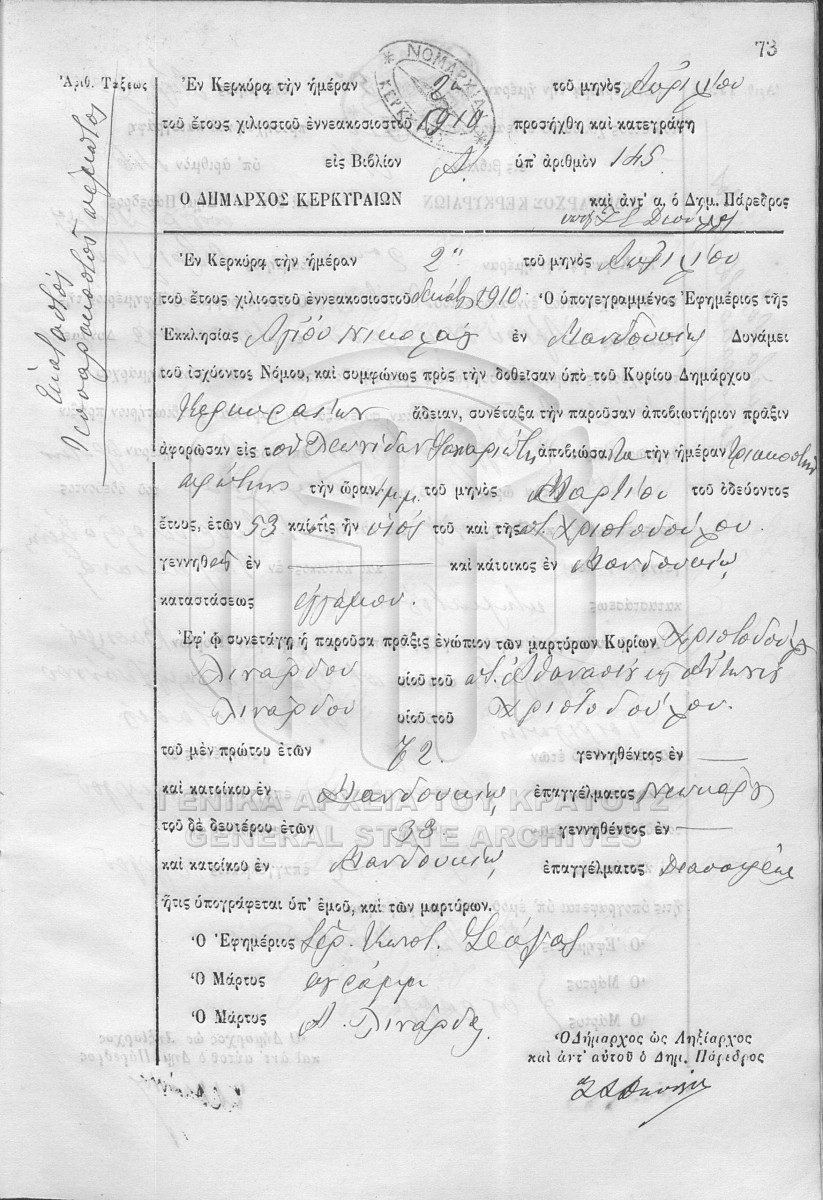 73
Ἀριθ. Τάξεως
Ἑκατοστὸς
τεσσαρακοστὸς πέμπτος
ΝΟΜΑΡΧΙΑ
ΚΕΡΚΥΡΑΣ
Ἐν Κερκύρᾳ τὴν ἡμέραν 2αν τοῦ μηνὸς Ἀπριλίου
τοῦ ἔτους χιλιοστοῦ ἐννεακοσιοστοῦ 1910 προσήχθη καὶ κατεγράφη
εἰς Βιβλίον Α. ὑπ' ἀριθμὸν 145.
Ο ΔΗΜΑΡΧΟΣ ΚΕΡΚΥΡΑΙΩΝ καὶ ἀντ' α. ὁ Δημ. Πάρεδρος
Ἐν Κερκύρᾳ τὴν ἡμέραν 2αν τοῦ μηνὸς Ἀπριλίου
τοῦ ἔτους χιλιοστοῦ ἐννεακοσιοστοῦ δεκάτου 1910. Ὁ ὑπογεγραμμένος Ἐφημέριος τῆς
Ἐκκλησίας Ἁγίου Νικολάου ἐν Μανδουκίῳ Δυνάμει
τοῦ ἰσχύοντος Νόμου, καὶ συμφώνως πρὸς τὴν δοθεῖσαν ὑπὸ τοῦ Κυρίου Δημάρχου
Κερκυραίων ἄδειαν, συνέταξα τὴν παροῦσαν ἀποβιωτήριον πρᾶξιν
ἀφορῶσαν εἰς τὸν Λεωνίδαν ἀποβιώσαντα τὴν ἡμέραν τριακοστὴν
πρώτην τὴν ὥραν μ.μ. τοῦ μηνὸς Μαρτίου τοῦ ὁδεύοντος
ἔτους, ἐτῶν 53 καὶ τὶς ἦν υἱὸς τοῦ καὶ τῆς ποτ. Χριστοδούλου.
γεννηθεὶς ἐν — καὶ κάτοικος ἐν Μανδουκίῳ
καταστάσεως ἐγγάμου.
Ἐφ' ᾧ συνετάγη ἡ παροῦσα πρᾶξις ἐνώπιον τῶν μαρτύρων Κυρίων Χριστοδούλου
Λινάρδου υἱοῦ τοῦ ποτ. Ἀθανασίου καὶ Ἀντωνίου
Λινάρδου υἱοῦ τοῦ Χριστοδούλου.
τοῦ μὲν πρώτου ἐτῶν 72. γεννηθέντος ἐν —
καὶ κατοίκου ἐν Μανδουκίῳ ἐπαγγέλματος
ΓΕΝΙΚΑ ΑΡΧΕΙΑ ΤΟΥ ΚΡΑΤΟΥΣ
τοῦ δὲ δευτέρου ἐτῶν 33. γεννηθέντος ἐν —
GENERAL STATE ARCHIVES
καὶ κατοίκου ἐν Μανδουκίῳ ἐπαγγέλματος
ἥτις ὑπογράφεται ὑπ' ἐμοῦ, καὶ τῶν μαρτύρων.
Ὁ Ἐφημέριος Ἱερ. Κωνστ.
Ὁ Μάρτυς ἀγράμμ
Ὁ Μάρτυς Α. Λινάρδος
Ὁ Δήμαρχος ὡς Ληξίαρχος
καὶ ἀντ' αὐτοῦ ὁ Δημ. Πάρεδρος